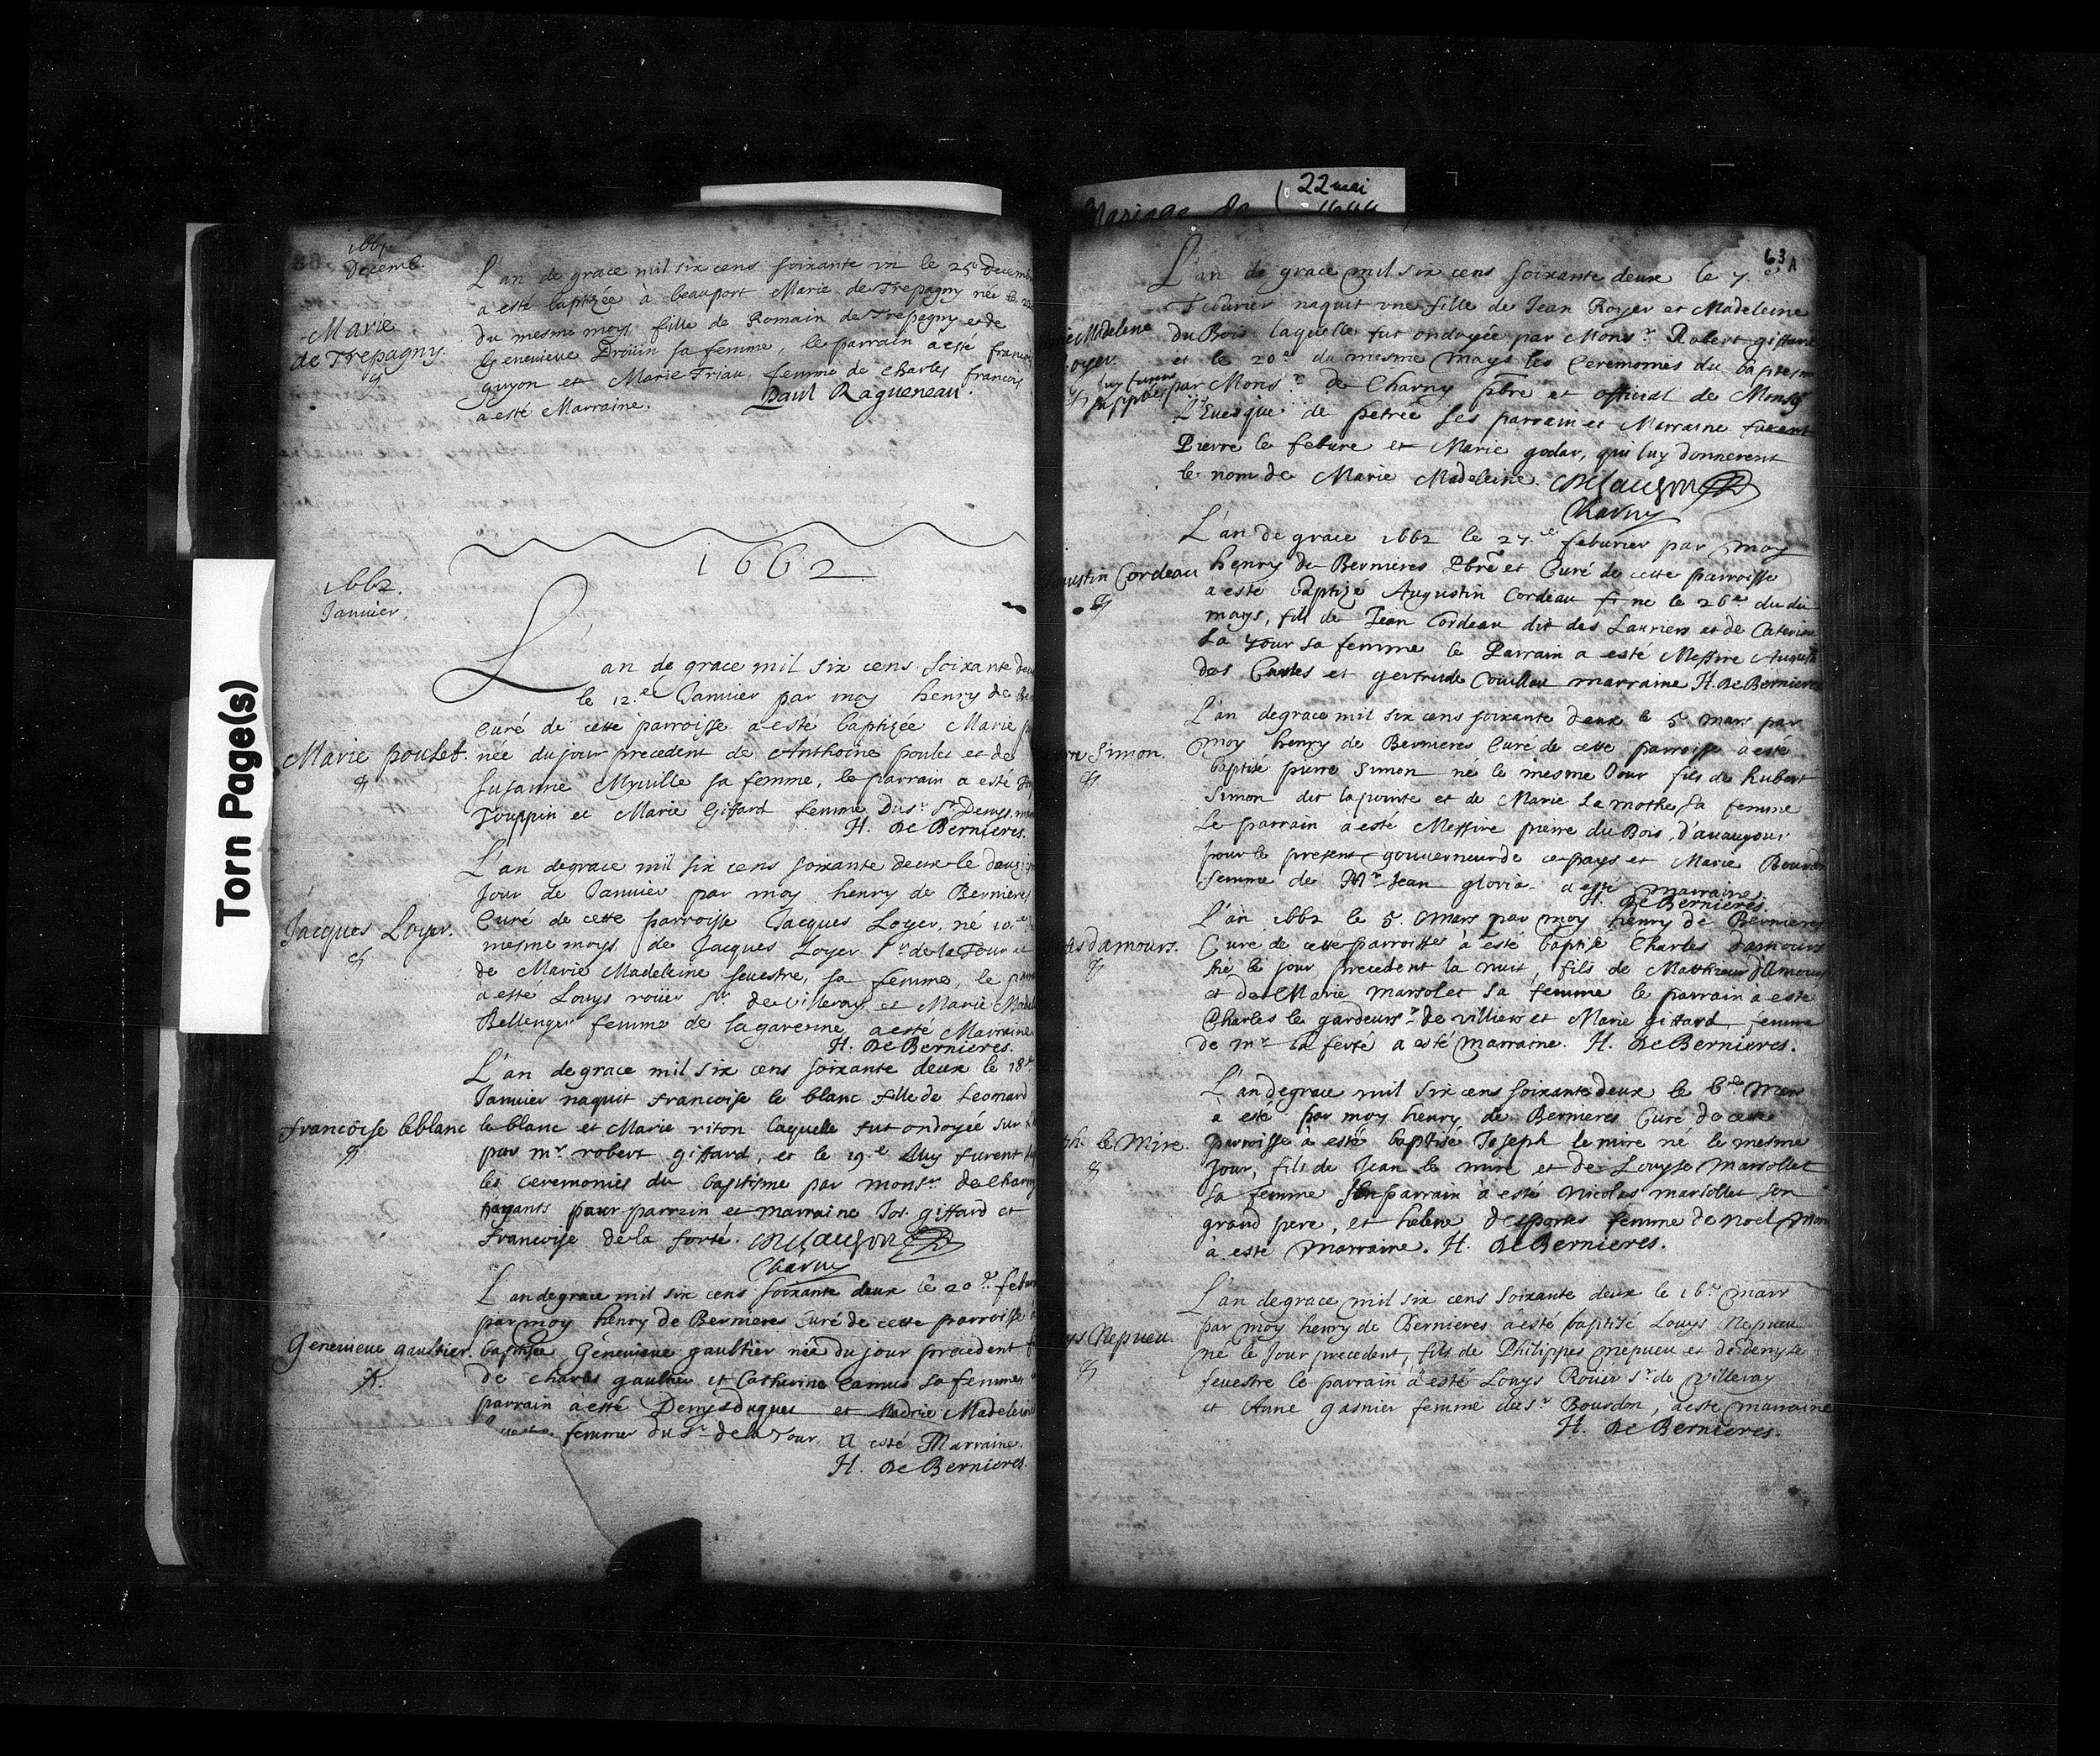 Torn Page(s)
22 mai
Mariage
1661
Decemb.
Marie
de Trepagny.
L'an de grace mil six cens soixante un le 25e decemb
a esté baptizée à beauport Marie de Trepagny née le
du mesme moys fille de Romain de Trepagny et de
Genevieve Droüin sa femme, le parrain a esté francoys
guyon et Marie Triau femme de charles francoys
a esté Marraine. Paul Ragueneau.
1662
1662.
Janvier.
L'an de grace mil six cens soixante deux
le 12.e Janvier par moy henry de Be
Curé de cette parroisse a esté baptizée Marie
Marie poulet. née du jour precedent de Anthoine poulet et de
Susanne Myville sa femme, le parrain a esté
Touppin et Marie Giffard femme du sr St Denys
H. De Bernieres.
L'an de grace mil six cens soixante deux le
Jour de Janvier par moy henry de Bernieres
Jacques Loyer. Curé de cette parroisse Jacques Loyer, né 10.e
mesme moys de Jacques Loyer Sr de la Tour et
de Marie Madeleine sevestre, sa femme, le
à esté Louys roüer Sr de villeray et Marie
Bellenger femme de la garenne a esté Marraine
H. De Bernieres.
L'an de grace mil six cens soixante deux le 18e
Janvier naquit francoise le blanc fille de Leonard
francoise leblanc le blanc et Marie riton laquelle fut ondoyée sur
par mr. robert giffard, et le 19.e luy furent
les ceremonies du baptisme par monsr. de Charny
ayants pour parrain et marraine Jos. giffard et
francoise de la forté. CDelauson
Charny
L'an de grace mil six cens soixante deux le 20e febu
par moy henry de Bernieres Curé de cette parroisse
Genevieve gaultier. baptisée Genevieve gaultier née du jour precedent
de charles gaultier et Catherine Camus sa femme
parrain a esté Denys duquet et Madrie Madelein
femme du Sr de la Tour a esté Marraine.
H. De Bernieres
63 A
L'an de grace mil six cens soixante deux le 7.e
Feburier naquit une fille de Jean Royer et Madeleine
Madelene du Bois laquelle fut ondoyée par Monsr. Robert giffard
oyer. et le 20e du mesme moys les Ceremonies du baptesm
luy furent par Monsr. de Charny pbre et official de Monsg
L'Evesque de petrée ses parrain et Marraine furent
Pierre le febure et Marie godar, qui luy donnerent
le nom de Marie Madeleine. CDelauson
Charny
L'an de grace 1662 le 27.e feburier par moy
ustin Cordeau henry de Bernieres Pbre et Curé de cette parroisse
a esté baptizé Augustin Cordeau né le 26e du dit
moys, fils de Jean Cordeau dit des Lauriers et de Caterine
La Tour sa femme le Parrain a esté Messire August
des Cartes et gertrude Couillar marraine H. De Bernieres
L'an de grace mil six cens soixante deux le 5 mars par
rre Simon. moy henry de Bernieres Curé de cette parroisse à esté
baptisé pierre Simon né le mesme Jour fils de hubert
Simon dit lapointe et de Marie Lamothe sa femme
Le parrain a esté Messire pierre du Bois, d'avaugour
pour le present gouverneur de ce pays et Marie Bourdo
femme de Mr Jean gloria a esté marraine
H. De Bernieres
L'an 1662 le 5. mars par moy henry de Bernieres
les d'amours. Curé de cette parroisse à esté baptisé Charles d'amours
né le jour precedent la nuit, fils de Matthieu d'Amours
et de Marie Marsolet sa femme le parrain à esté
Charles le gardeur sr de villiers et Marie giffard femme
de mr la ferté a esté marraine. H. De Bernieres.
L'an de grace mil six cens soixante deux le 6e Mars
a esté par moy henry de Bernieres Curé de cette
ph. le Mire. parroisse à esté baptisé Joseph le mire né le mesme
Jour, fils de Jean le mire et de Louyse Marsollet
sa femme son parrain à esté Nicolas marsollet son
grand pere, et helene desportes femme de noel Morin
à esté marraine. H. De Bernieres.
L'an de grace mil six cens soixante deux le 16e mars
par moy henry de Bernieres à esté baptisé Louys Nepveu
ys Nepveu. né le Jour precedent, fils de Philippes nepveu et de denyse
sevestre le parrain à esté Louys Rouer sr de villeray
et Anne gasnier femme du sr Bourdon, a esté marraine
H. De Bernieres.